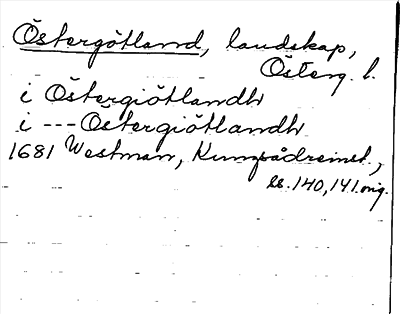 Östergötland, landskap,
Österg. l.
i Östergiötlandh
i --- Östergiötlandh
1681 Westman, Kumpådreinst.,
ss. 140, 141. orig.